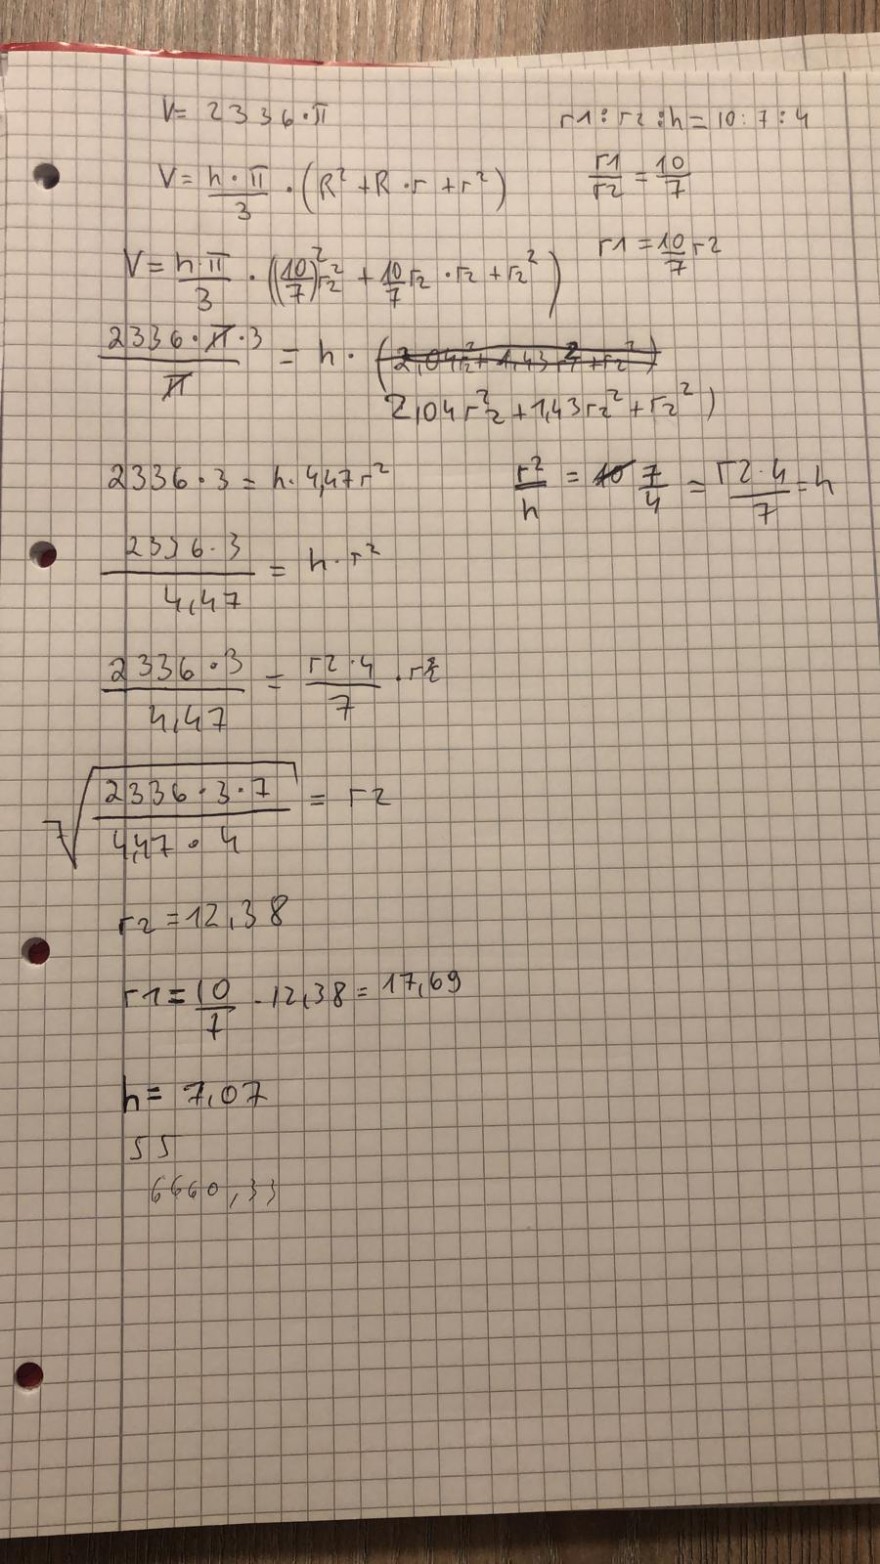 V = 2336·π
r1 : r2 : h = 10 : 7 : 4
V = h·π/3 · (R² + R·r + r²)
r1/r2 = 10/7
r1 = 10/7 r2
V = h·π/3 · ((10/7)² r2² + 10/7 r2 · r2 + r2²)
2336·π·3/π = h · (2,04r2² + 1,43r2² + r2²)
2,04r2² + 1,43r2² + r2²)
2336·3 = h·4,47r²
r2/h = 10 7/4 = r2·4/7 = h
2336·3/4,47 = h·r²
2336·3/4,47 = r2·4/7 · r2²
7√(2336·3·7/4,47·4) = r2
r2 = 12,38
r1 = 10/7 · 12,38 = 17,69
h = 7,07
55
6660,33